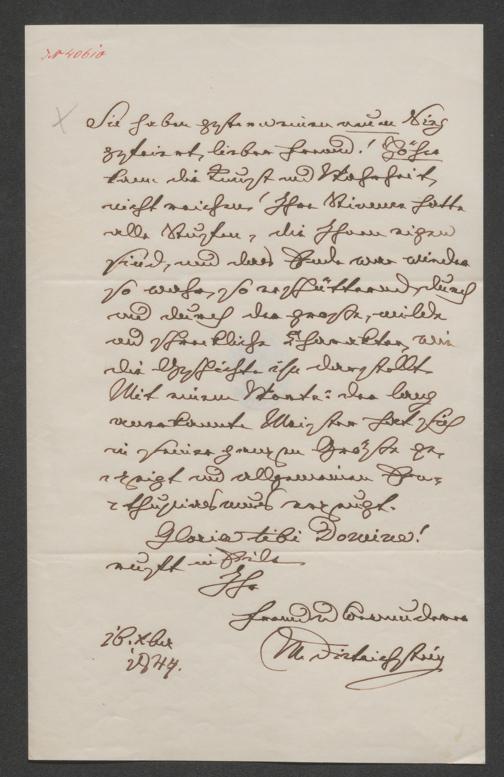 Sie haben gestern einen neuen Sieg
gefeiert, lieber Freund! Höher
kann die Kunst und Wahrheit
nicht reichen! Ihre Stimme hatte
alle Stufen, die Ihnen eigen
sind, und das Ende war wieder
so wahr, so erschütternd, durch
und durch der große, wilde
und schreckliche Charakter, wie
die Geschichte ihn darstellt
Mit einem Worte: der lang
anerkannte Meister hat sich
in seiner ganzen Größe ge-
zeigt und allgemeinen En-
thusiasmus erzeugt.
Gloria tibi Domine!
ruft in Eile
Ihr
Freund u Bewunderer
M. Dietrichstein
16. Xber